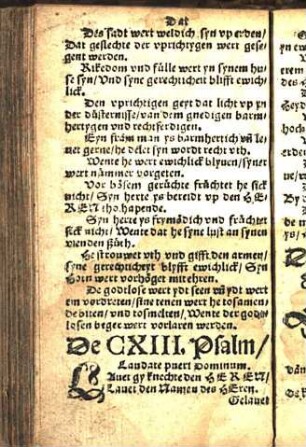 Dat
Des sadt wert weldich syn vp erden/
Dat geslechte der vprichtygen wert gese-
gent werden.
Rikedom und fülle wert yn synem hu-
se syn/ Und syne gerechticheit blifft ewich-
lick.
Den vprichtigen geyt dat licht vp yn
der düsternisse/ van dem gnedigen barm-
hertygen vnd rechtferdigen.
Eyn from man ys barmhertich vñ le-
net gerne/
Wente he wert ewichlick blyuen/ syner
wert nümmer vorgeten.
Vor bösem gerüchte früchtet he sick
nicht/ Syn herte ys bereidt vp den HE-
REN tho hapende.
Syn herte ys frymödich vnd früchtet
sick nicht/ Wente dat he syne lust an synen
vienden süth.
He strouwet vth vnd gifft den armen/
syne gerechticheyt blyfft ewichlick/ Syn
Horn wert vorhöget mit ehren.
De godtlose wert ydt seen vnd ydt wert
en vordreten/ sine tenen wert he tosamen-
de biten/ vnd tosmelten/ Wente der godt-
losen beger wert vorlaren werden.
De CXIII. Psalm/
Laudate pueri Dominum.
LAuet gy knechte den HEREN/
Lauet den Namen des HEren.
Gelauet